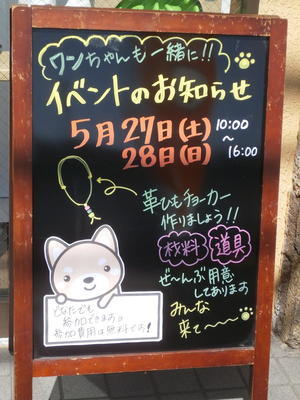 ワンちゃんも一緒に!!
イベントのお知らせ
5月27日(土) 10:00
28日(日) ~16:00
革ひもチョーカー
作りましょう!!
材料 道具
ぜ〜んぶ用意
してあります
みんな
来て〜〜
どなたでも
参加できます♪
参加費用は無料です!